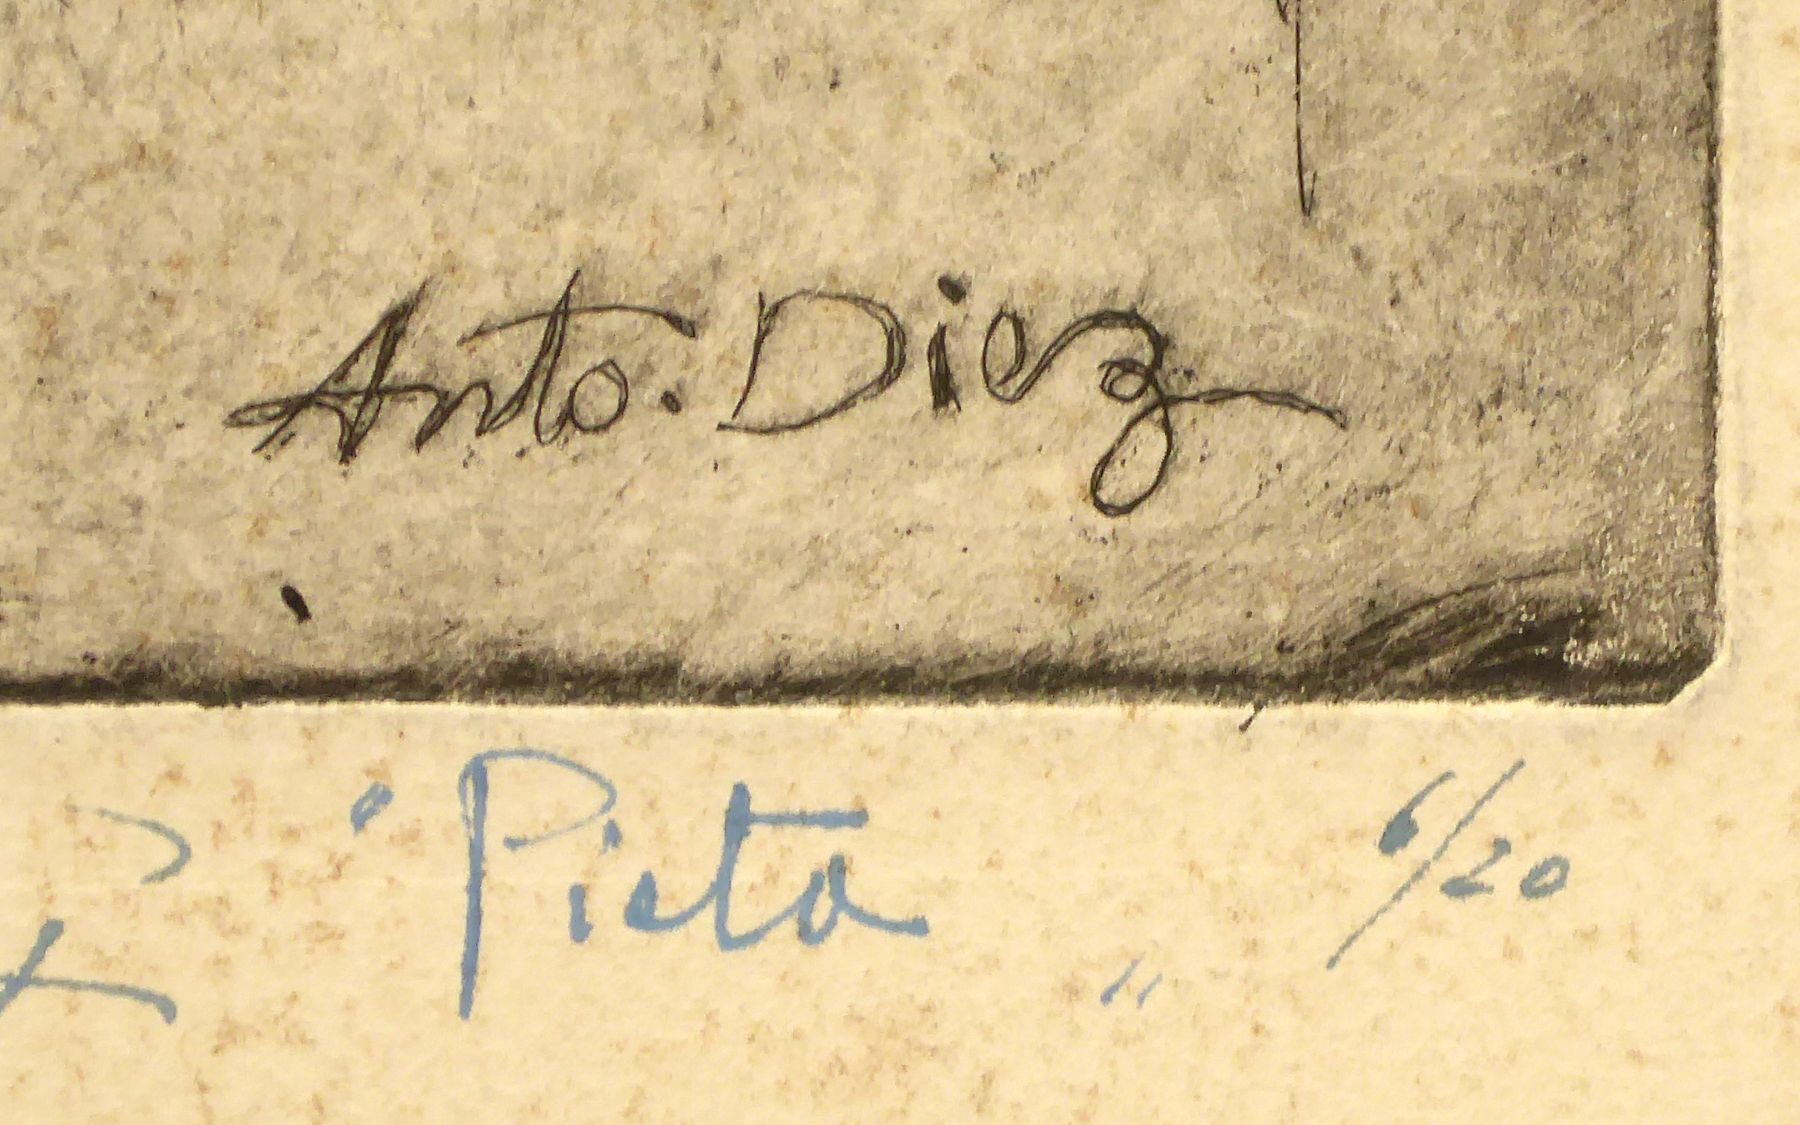 Anto. Diez
"Pieta" 6/20